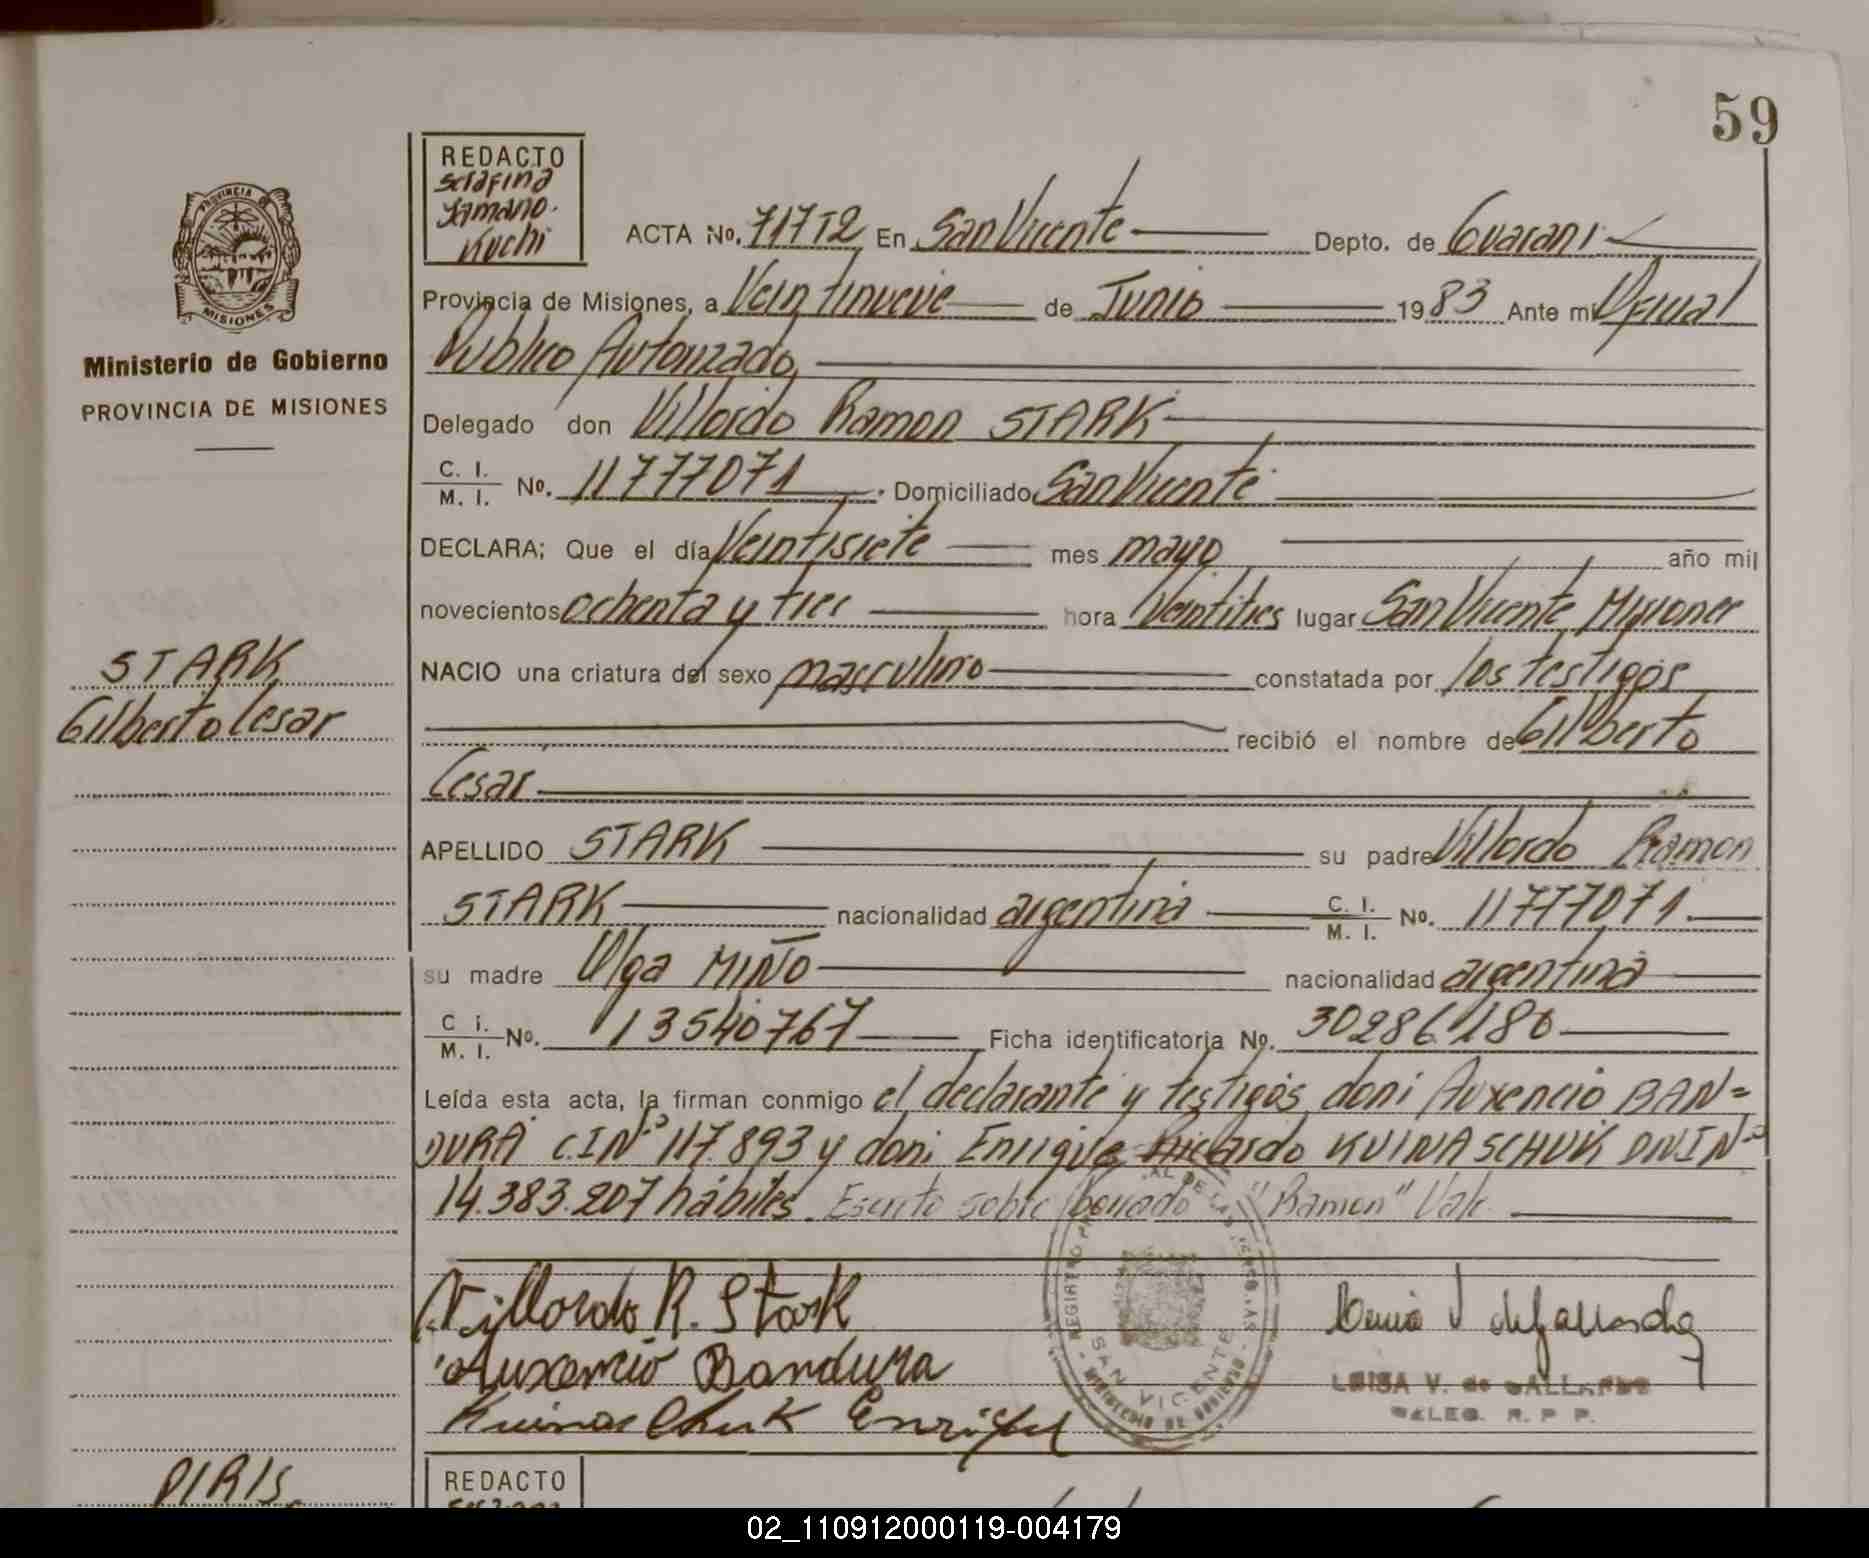 59
REDACTO
Serafina
Yamano.
Kuchi
PROVINCIA
MISIONES
Ministerio de Gobierno
PROVINCIA DE MISIONES
ACTA No. 717T2 En San Vicente Depto. de Guarani
Provincia de Misiones, a Veintinueve de Junio 1983 Ante mi Oficial
Publico Autorizado
Delegado don Villordo Ramon STARK
C. I.
M. I. No. 11777071 Domiciliado San Vicente
DECLARA; Que el día Veintisiete mes mayo año mil
novecientos ochenta y tres hora Veintitres lugar San Vicente Misiones
STARK
Gilberto Cesar
NACIO una criatura del sexo masculino constatada por los testigos
recibió el nombre de Gilberto
Cesar
APELLIDO STARK su padre Villordo Ramon
STARK nacionalidad argentina C. I. M. I. No. 11777071
su madre Olga MIÑO nacionalidad argentina
C. I. M. I. No. 13540767 Ficha identificatoria No. 30286180
Leída esta acta, la firman conmigo el declarante y testigos don: Auxencio BAN=
DURA C.I Nº 117.893 y don: Enrique Ricardo KUINASCHUK DNI Nº
14.383.207 hábiles. Escrito sobre borrado "Ramon" Vale
Villordo R. Stark
Auxencio Bandura
Kuinaschuk Enrique
SAN VICENTE
LUISA V. de GALLARDO
DELEG. R. P. P.
PIRIS
REDACTO
02_110912000119-004179